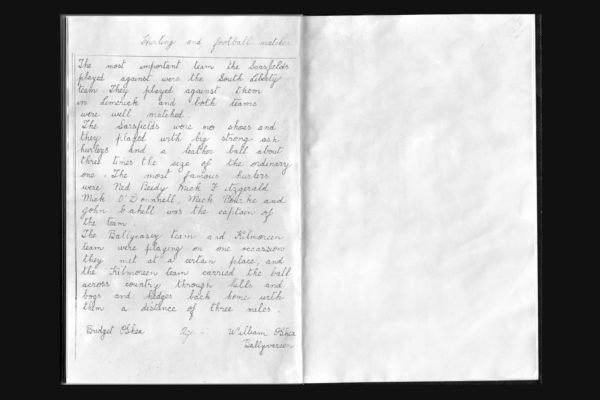 Hurling and football matches
The most important team the Sarsfields
played against were the South Liberty
team. They played against them
in Limerick and both teams
were well matched.
The Sarsfields wore no shoes and
they played with big strong ash
hurleys and a leather ball about
three times the size of the ordinary
one. The most famous hurlers
were Ned Reidy Mick Fitzgerald
Mick O'Donnell, Mick Bourke and
John Cahill was the captain of
the team.
The Ballycasey team and Kilmoreen
team were playing on one occassion
they met at a certain place, and
the Kilmoreen team carried the ball
across country through hills and
bogs and hedges back home with
them a distance of three miles.
Bridget O'Shea William O'Shea
Ballyvareen